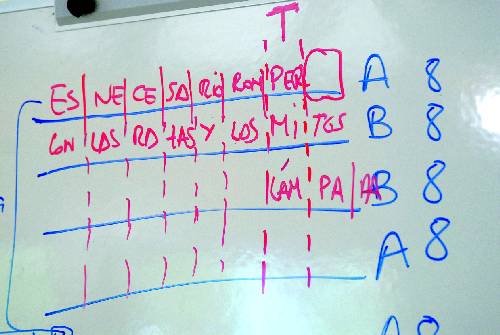 T
ES NE CE SA RIO ROM PER A 8
CON LAS RA TAS Y LOS MI TOS B 8
LÁM PA RA B 8
A 8